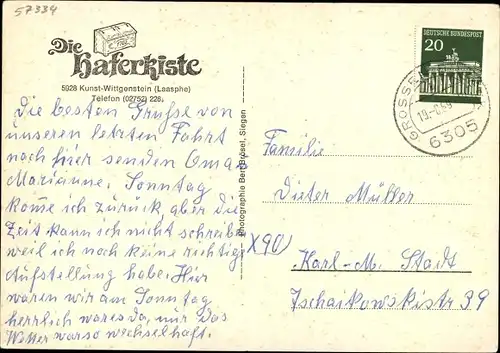 57334
Die
Haferkiste
5928 Kunst-Wittgenstein (Laasphe)
Telefon (02752) 226
Die besten Grüße von
unseren letzten Fahrt
nach hier senden Oma
Marianne. Sonntag
kome ich zurück, aber die
Zeit kann ich nicht schreibe
weil ich noch keine richtige
Aufstellung habe. Hier
waren wir am Sonntag
herrlich wares da, nur Das
Wetter warso wechselhaft.
Photographie Bert Brösel, Siegen
DEUTSCHE BUNDESPOST
20
6305
Familie
Dieter Müller
X90)
Karl-M. Stadt
Tschaikowskistr 39